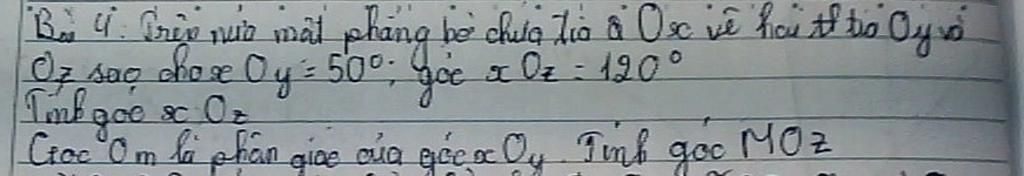 Bài 4: Trên nửa mặt phẳng bờ chứa tia Ox vẽ hai tia Oy và
Oz sao cho xOy = 50°; góc xOz = 120°
Tính góc xOz
Gọc Om là phân giác của góc xOy. Tính góc MOz